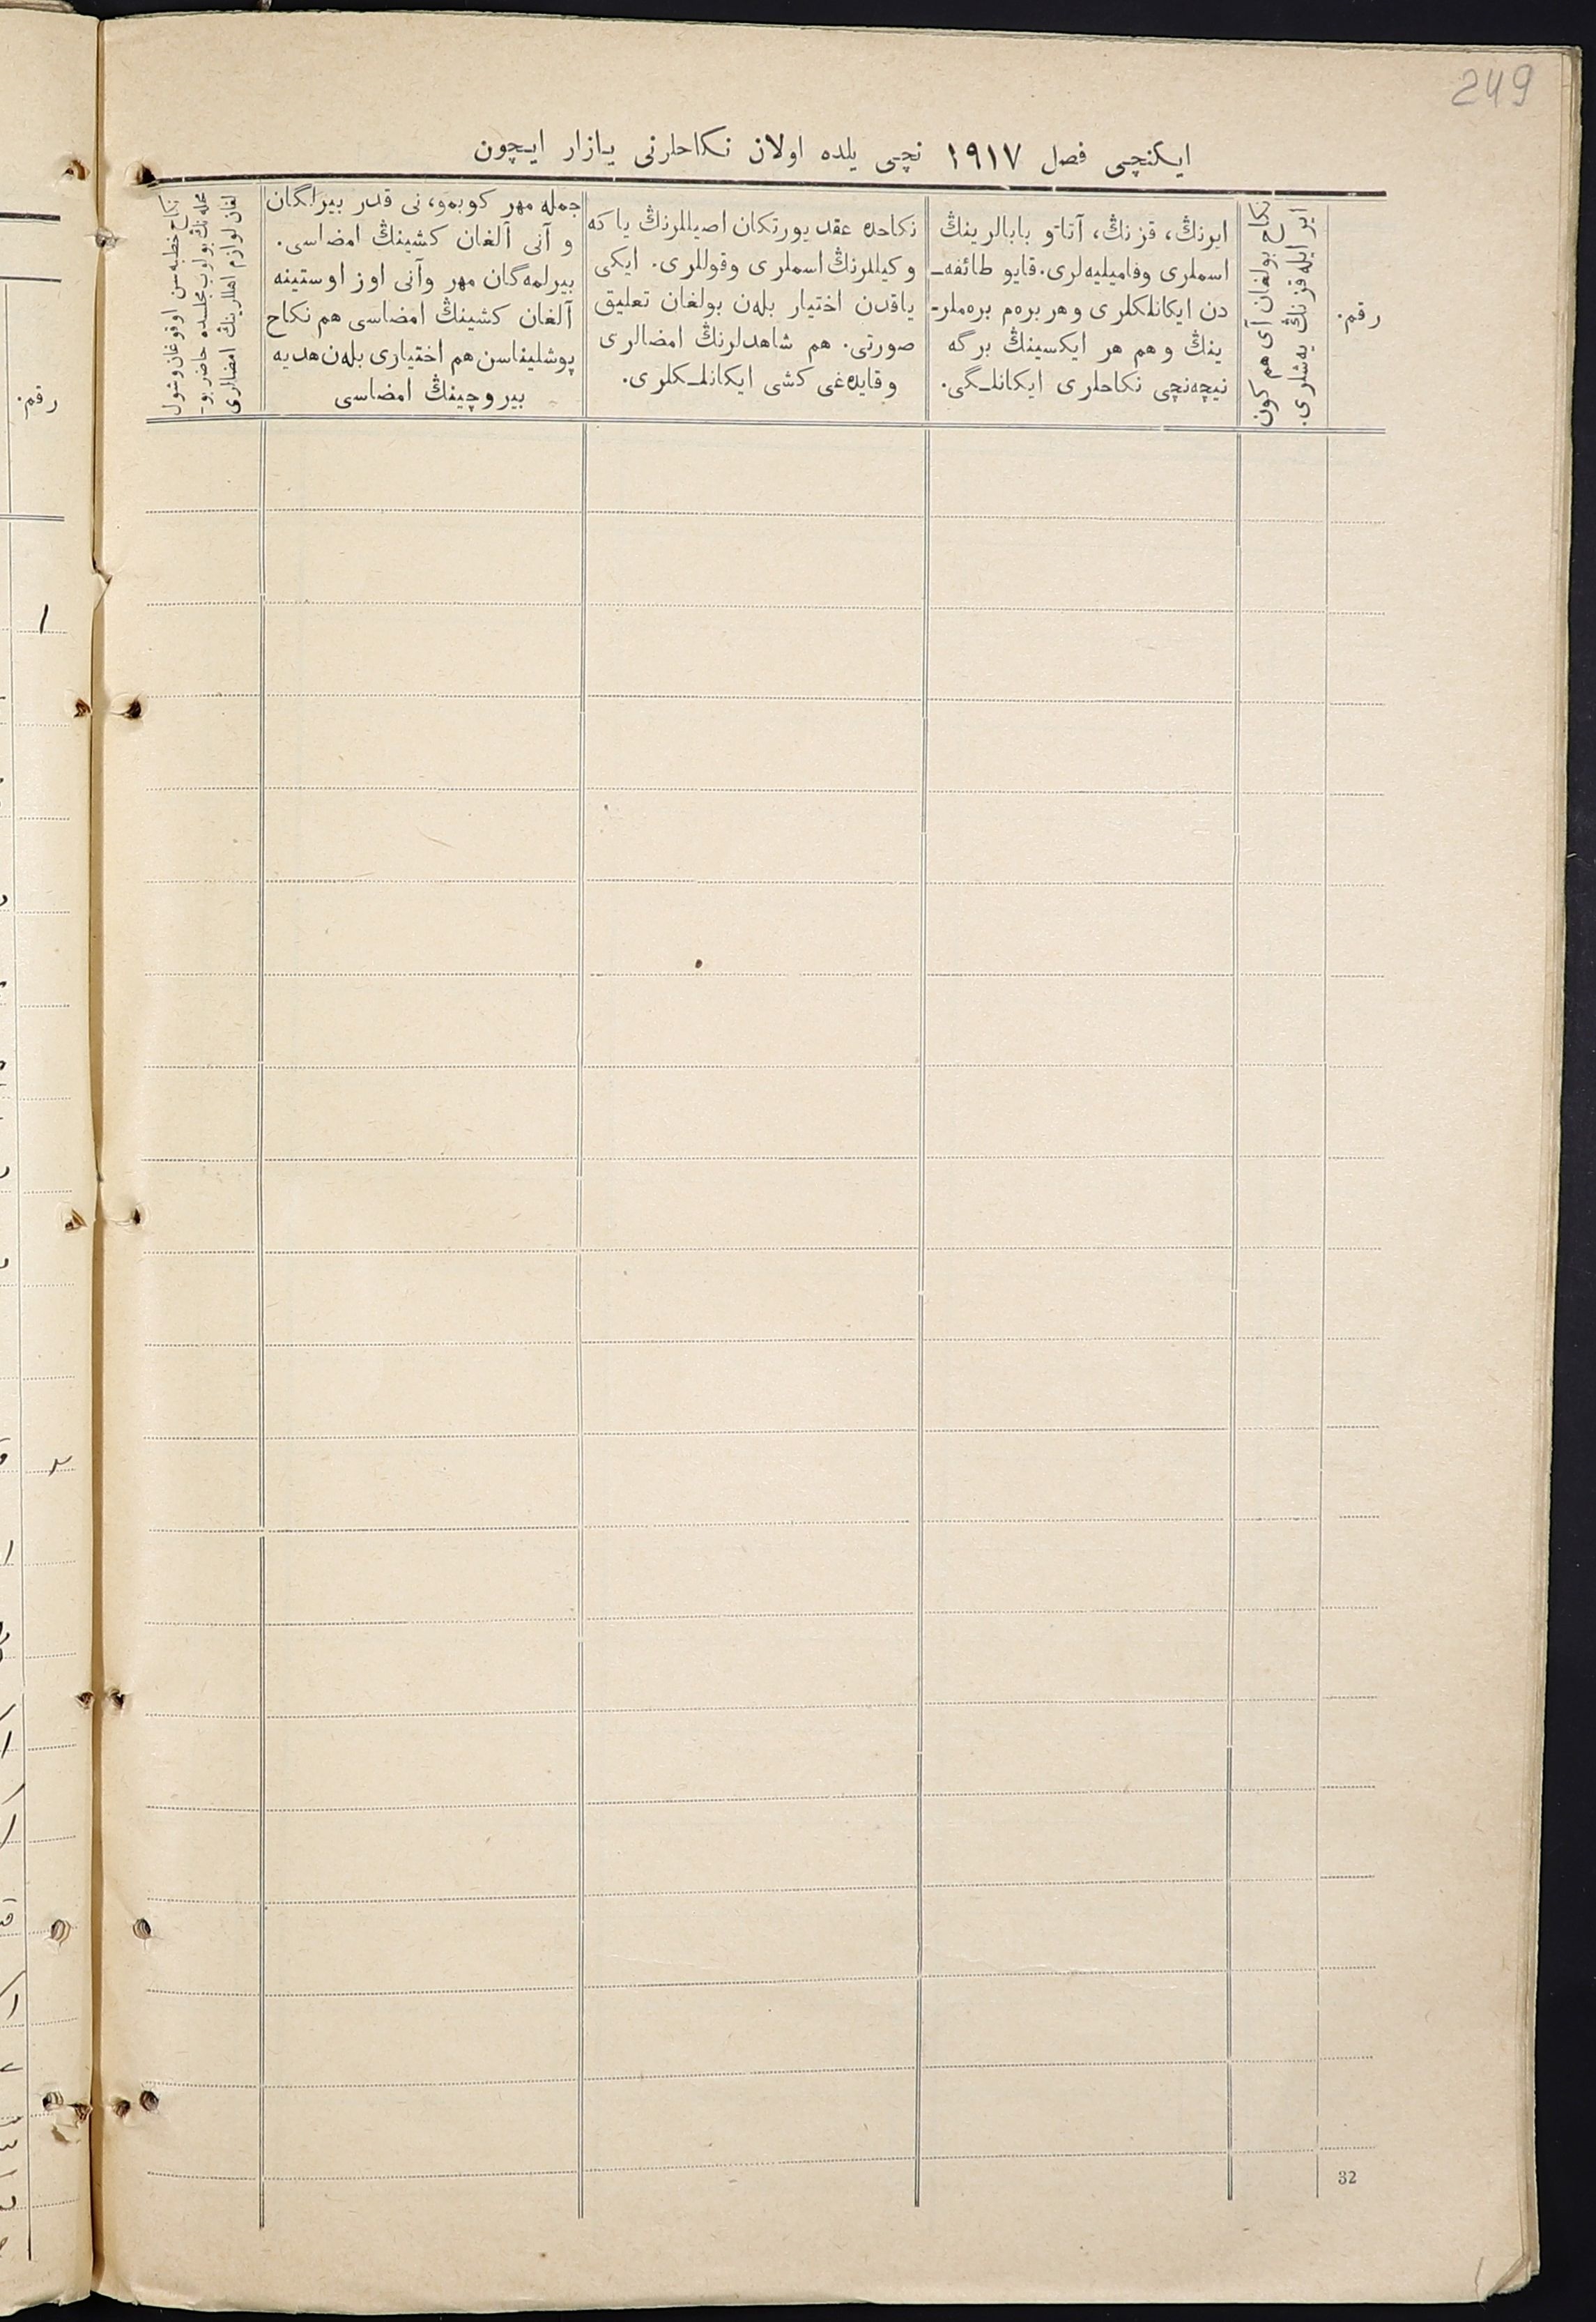 249
ایکنچی فصل ۱۹۱۷ نچی یلده اولان نکاحلرنی یازار ایچون
رقم.
نکاح بولغان آی هم کون
ایر ایله قزنڭ یه‌شلری.
ایرنڭ، قزنڭ، آتا و بابالرینڭ
اسملری وفامیلیه‌لری. قایو طائفه‌ـ
دن ایکانلکلری و هر بره‌م بره‌ملرـ
ینڭ و هم هر ایکسینڭ برگه
نیچه‌نچی نکاحلری ایکانلـگی.
نکاحده عقد یورتکان اصیللرنڭ یا که
وکیللرنڭ اسملری وقوللری. ایکی
یاقدن اختیار بله‌ن بولغان تعلیق
صورتی. هم شاهدلرنڭ امضالری
وقایده‌غی کشی ایکانلـکلری.
جمله مهر کوبمو، نی قدر بیرلگان
و آنی آلغان کشینڭ امضاسی.
بیرلمه‌گان مهر وآنی اوز اوستینه
آلغان کشینڭ امضاسی هم نکاح
پوشلیناسن هم اختیاری بله‌ن هدیه
بیروچینڭ امضاسی
نکاح خطبه‌سن اوقوغان وشول
محله‌نڭ بولوب مجلسده حاضر بوـ
لغان لوازم اهللرینڭ امضالری
32
رقم.
۱
۲